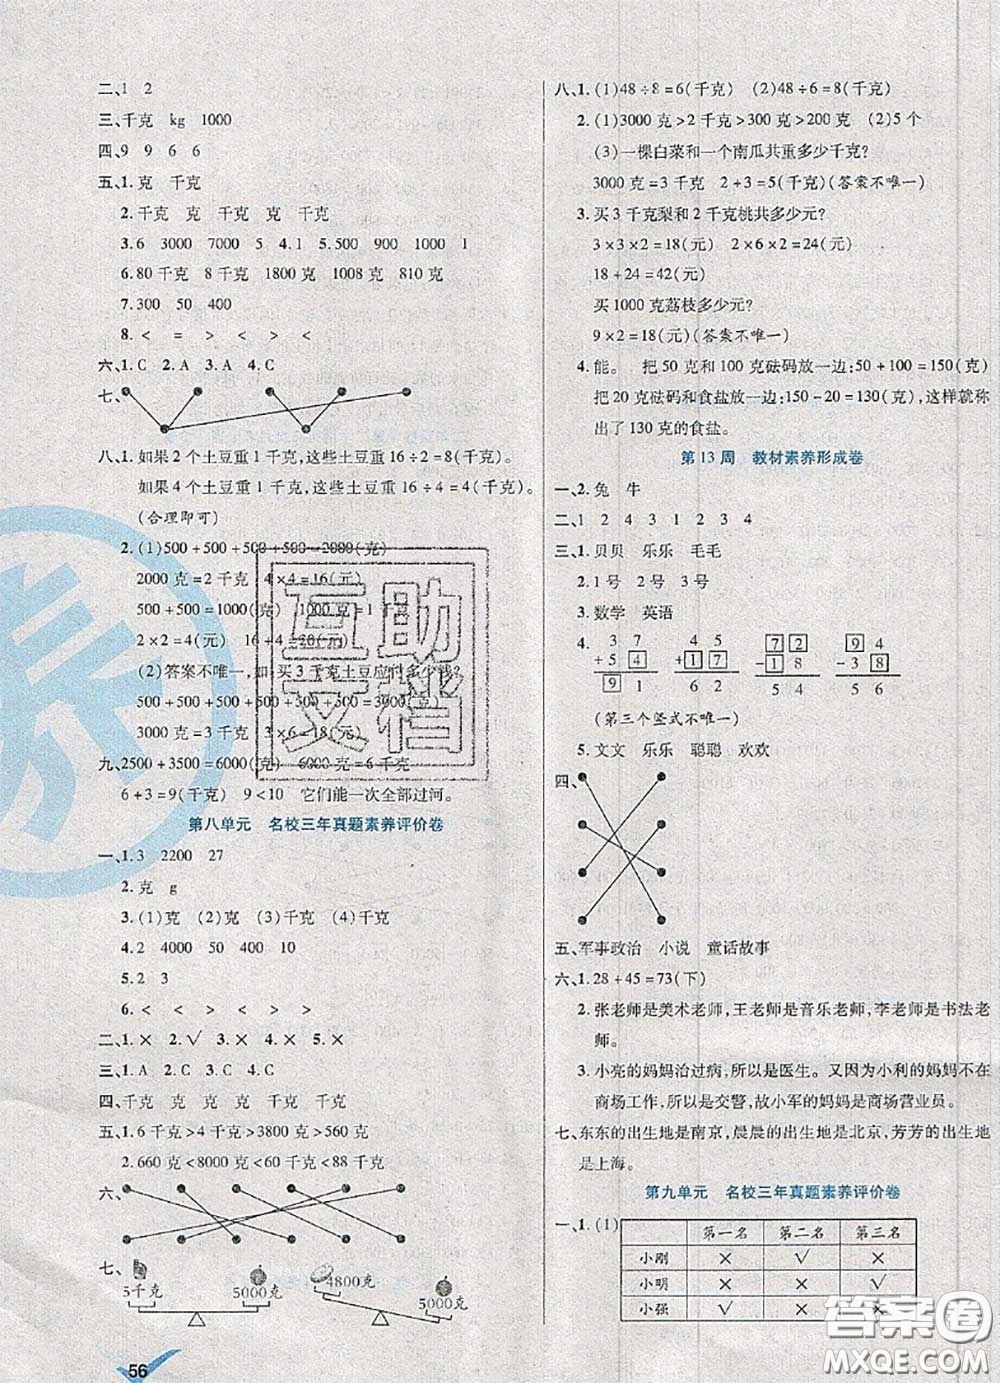 二、1 2
三、千克 kg 1000
四、9 9 6 6
五、1.克 千克
2.千克 克 千克 克 千克
3.6 3000 7000 5 4.1 5.500 900 1000 1
6.80千克 8千克 1800克 1008克 810克
7.300 50 400
8.< = > < > <
六、1.C 2.A 3.A 4.C
七、
八、1.如果2个土豆重1千克,这些土豆重16÷2=8(千克)。
如果4个土豆重1千克,这些土豆重16÷4=4(千克)。
(合理即可)
2.(1)500+500+500+500=2000(克)
2000克=2千克 4×4=16(元)
500+500=1000(克) 1000克=1千克
2×2=4(元) 16+4=20(元)
(2)答案不唯一,如:买3千克土豆应付多少钱?
500+500+500+500+500+500=3000(克)
3000克=3千克
九、2500+3500=6000(克) 6000克=6千克
6+3=9(千克) 9<10 它们能一次全部过河。
第八单元 名校三年真题素养评价卷
一、1.3 2200 27
2.克 g
3.(1)克 (2)克 (3)千克 (4)千克
4.2 4000 50 400 10
5.2 3
6.< > < > > <
二、1.× 2.√ 3.× 4.× 5.×
三、1.A 2.C 3.B 4.C
四、千克 克 克 千克 克 克 千克
五、1.6千克>4千克>3800克>560克
2.660克<8000克<60千克<88千克
六、
七、
5千克 5000克 4800克 5000克
56
八、1.(1)48÷8=6(千克) (2)48÷6=8(千克)
2.(1)3000克>2千克>300克>200克 (2)5个
(3)一棵白菜和一个南瓜共重多少千克?
3000克=3千克 2+3=5(千克)(答案不唯一)
3.买3千克梨和2千克桃共多少元?
3×3×2=18(元) 2×6×2=24(元)
18+24=42(元)
买1000克荔枝多少元?
9×2=18(元)(答案不唯一)
4.能。 把50克和100克砝码放一边:50+100=150(克)
把20克砝码和食盐放一边:150-20=130(克),这样就称
出了130克的食盐。
第13周 教材素养形成卷
一、2.兔 牛
二、1 2 4 3 1 2 3 4
三、1.贝贝 乐乐 毛毛
2.1号 2号 3号
3.数学 英语
4. 3 7 4 5 7 2 9 4
+ 5 4 + 1 7 - 1 8 - 3 8
9 1 6 2 5 4 5 6
(第三个竖式不唯一)
5.文文 乐乐 聪聪 欢欢
四、
五、军事政治 小说 童话故事
六、1.28+45=73(下)
2.张老师是美术老师,王老师是音乐老师,李老师是书法老
师。
3.小亮的妈妈治过病,所以是医生。又因为小利的妈妈不在
商场工作,所以是交警,故小军的妈妈是商场营业员。
七、东东的出生地是南京,晨晨的出生地是北京,芳芳的出生地
是上海。
第九单元 名校三年真题素养评价卷
一、1.(1)
第一名 第二名 第三名
小刚 × √ ×
小明 × × √
小强 √ × ×
互助文档
答案圈
MXQE.COM